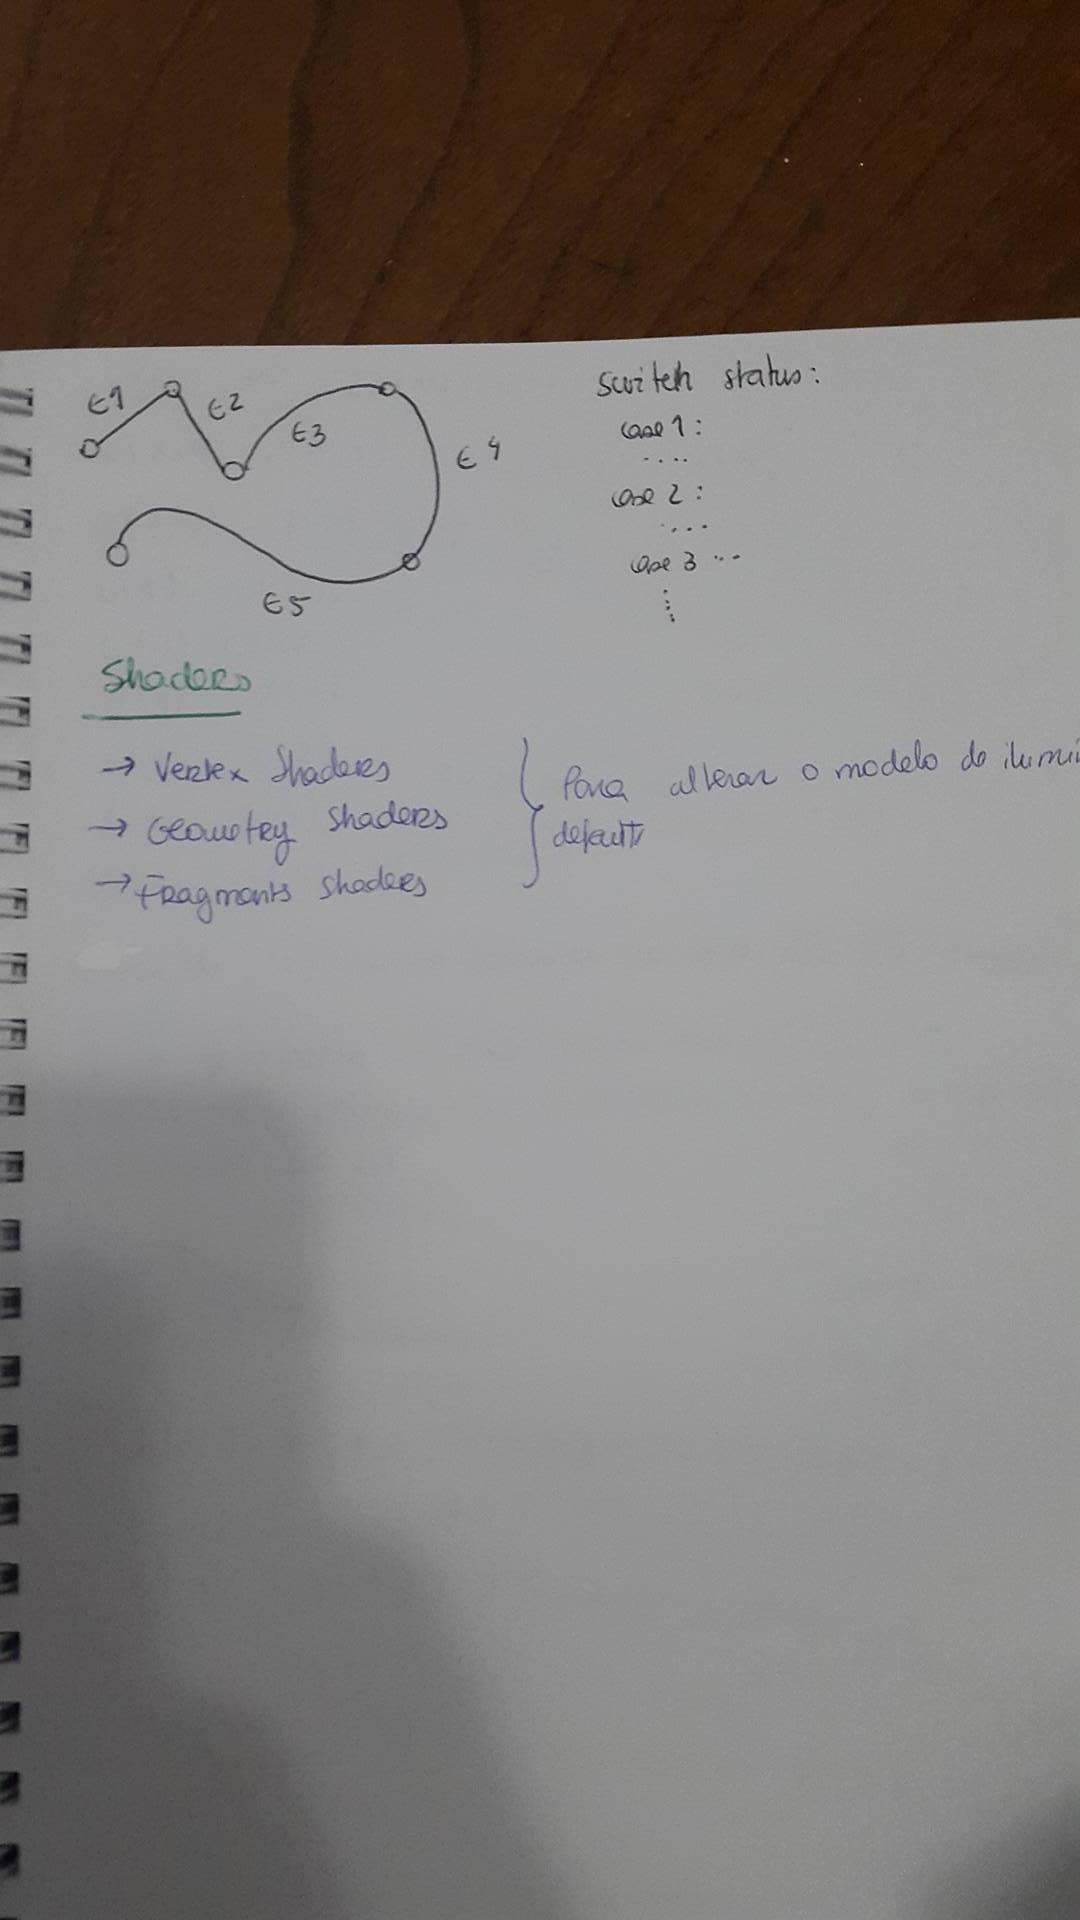 E1
E2
E3
E4
E5
switch status:
case 1:
....
case 2:
....
case 3 ...
Shaders
→ Vertex Shaders
→ Geometry Shaders
→ Fragments shaders
Para alterar o modelo de ilumi
default